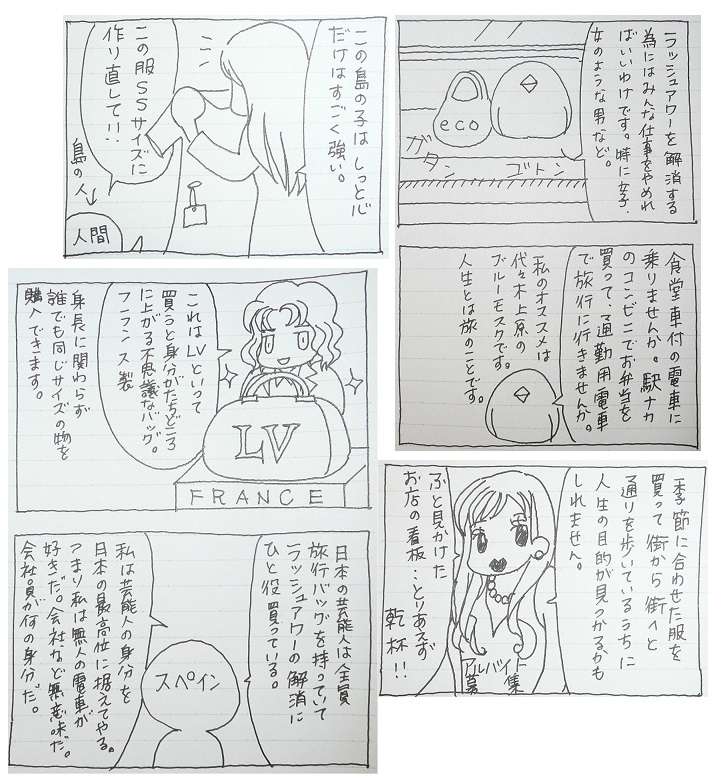 ラッシュアワーを解消する
為にはみんな仕事をやめれ
ばいいわけです。特に女子.
女のような男など。
eco
ガタン
ゴトン
食堂車付の電車に
乗りませんか。駅ナカ
のコンビニでお弁当を
買って、通勤用電車
で旅行に行きませんか。
私のオススメは
代々木上原の
ブルーモスクです。
人生とは旅のことです。
季節に合わせた服を
買って街から街へと
通りを歩いているうちに
人生の目的が見つかるかも
しれません。
ふと見かけた
お店の看板…とりあえず
乾杯!!
アルバイト
募集
この島の子はしっと心
だけはすごく強い。
この服SSサイズに
作り直して!!
島の人
人間
これはLVといって
買うと身分がたちどころ
に上がる不思議なバッグ。
フランス製
身長に関わらず
誰でも同じサイズの物を
購入できます。
LV
FRANCE
日本の芸能人は全員
旅行バッグを持っていて
ラッシュアワーの解消に
ひと役買っている。
私は芸能人の身分を
日本の最高位に据えてやる。
つまり私は無人の電車が
好きだ。会社など無意味だ。
会社員が何の身分だ。
スペイン